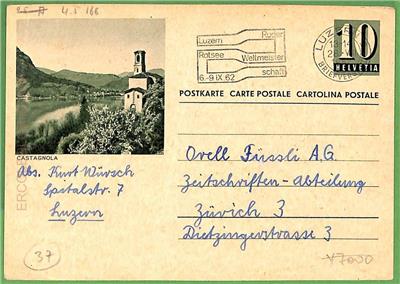 4.5 166
Luzern Ruder
Rotsee Weltmeister
6.-9 IX.62 schaft
LUZERN
BRIEFVERS
10
HELVETIA
POSTKARTE CARTE POSTALE CARTOLINA POSTALE
CASTAGNOLA
Abs. Kurt Würsch
Spitalstr. 7
Luzern
Orell Füssli A.G.
Zeitschriften-Abteilung
Zürich 3
Dietzingerstrasse 3
37